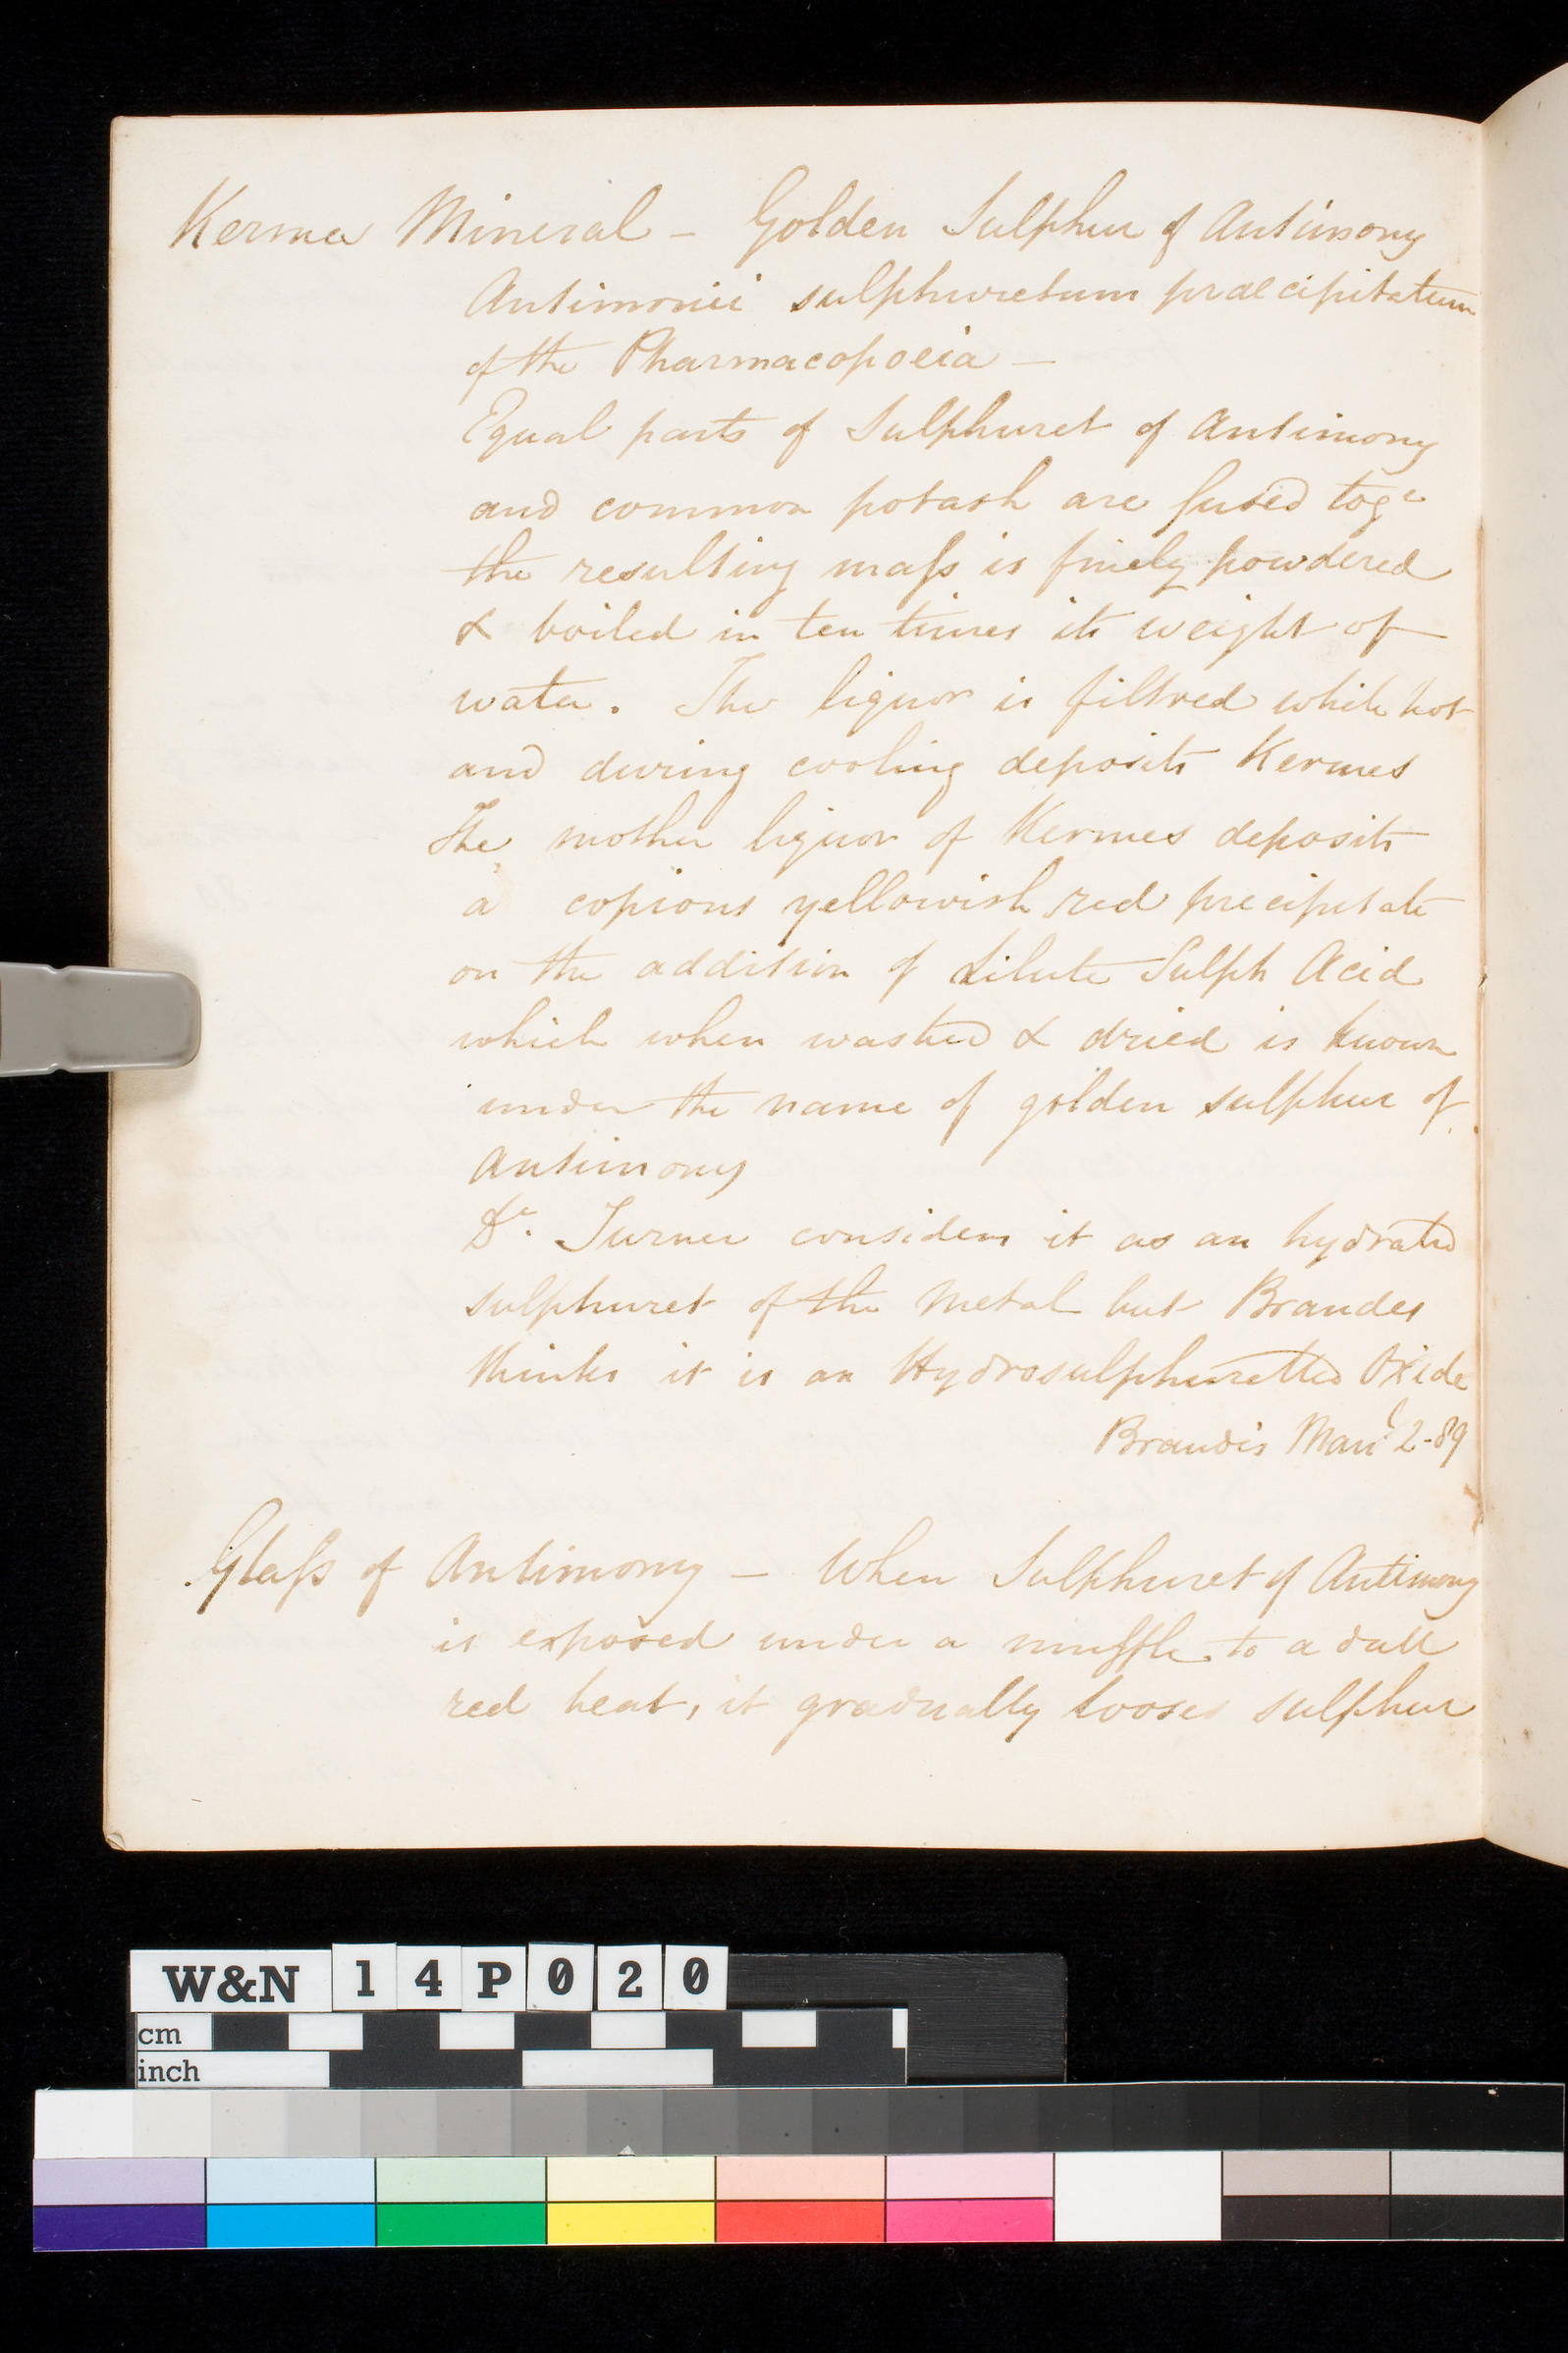 Kerma Mineral – Golden Sulphur of Antimony
Antimonii sulphuretum præcipitatum
of the Pharmacopoeia –
Equal parts of Sulphuret of Antimony
and common potash are fused togr
the resulting mass is finely powdered
& boiled in ten times its weight of
water. The liquor is filtred while hot
and during cooling deposits Kermes
The mother liquor of Kermes deposits
a copious yellowish red precipitate
on the addition of dilute Sulph Acid
which when washed & dried is known
under the name of golden sulphur of
Antimony
Dr. Turner considers it as an hydrated
sulphuret of the Metal but Brandes
thinks it is an Hydrosulphuretted Oxide
Brandis Manl 2-89
Glass of Antimony – When Sulphuret of Antimony
is exposed under a muffle to a dull
red heat, it gradually looses sulphur
W&N 14P020
cm
inch